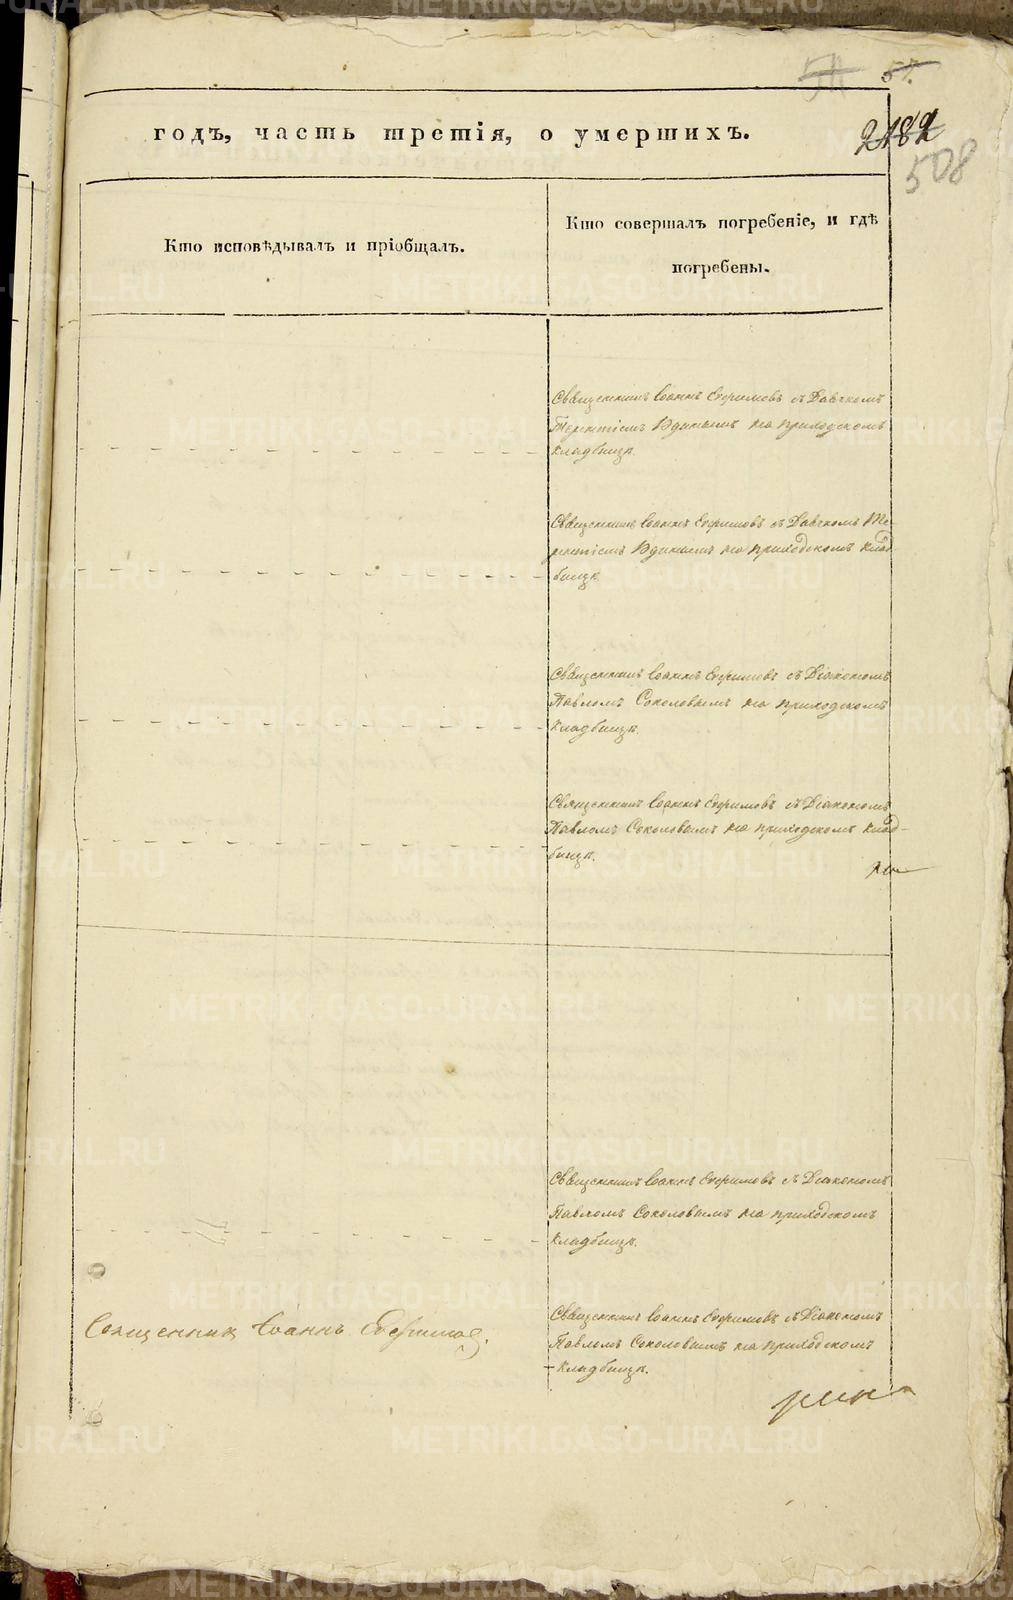 57.
годъ, часть третія, о умершихъ.
2182
508
Кто исповѣдывалъ и пріобщалъ.
Кто совершалъ погребеніе, и гдѣ
погребены.
Священникъ Іоаннъ Ефимовъ съ Дьячкомъ
Терентіемъ Юдинымъ на приходскомъ
кладбищѣ.
Священникъ Іоаннъ Ефимовъ съ Дьячкомъ Те-
рентіемъ Юдинымъ на приходскомъ клад-
бищѣ
Священникъ Іоаннъ Ефимовъ съ Діакономъ
Павломъ Соколовымъ на приходскомъ
кладбищѣ.
Священникъ Іоаннъ Ефимовъ съ Діакономъ
Павломъ Соколовымъ на приходскомъ клад-
бищѣ.
Священникъ Іоаннъ Ефимовъ съ Діакономъ
Павломъ Соколовымъ на приходскомъ
кладбищѣ.
Священникъ Іоаннъ Ефимовъ.
Священникъ Іоаннъ Ефимовъ съ Діакономъ
Павломъ Соколовымъ на приходскомъ
кладбищѣ.
METRIKI.GASO-URAL.RU